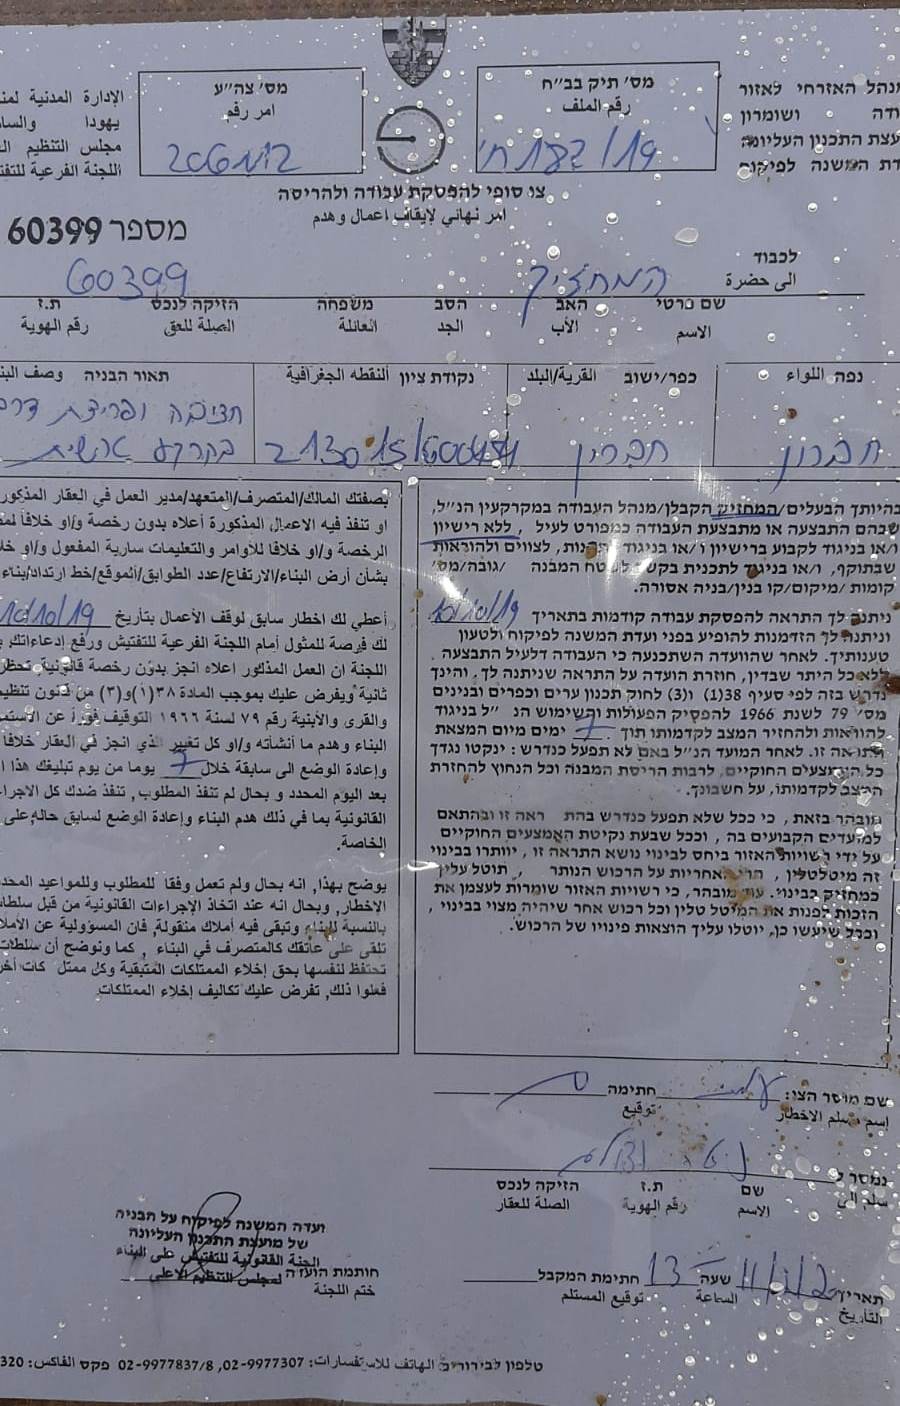 מנהל האזרחי לאזור
ודה ושומרון
עצת התכנון העליונה
דת המשנה לפיקוח
מס׳ תיק בב״ח
رقم الملف
מס׳ צה״ע
امر رقم
الإدارة المدنية لمن
يهودا والسا
مجلس التنظيم ال
اللجنة الفرعية للتفت
צו סופי להפסקת עבודה ולהריסה
امر نهائي لإيقاف اعمال وهدم
מספר 60399
לכבוד
الى حضرة
המחזיק
60399
שם פרטי האב הסב משפחה הזיקה לנכס ת.ז
الاسم الأب الجد العائلة الصلة للعق رقم الهوية
נפה اللواء
כפר/ישוב القرية/البلد
נקודת ציון النقطه الجغرافية
תאור הבניה وصف البن
חברון
חברון
חציבה ופריצת דרכ
בקרקע
בהיותך הבעלים/המחזיק/הקבלן/מנהל העבודה במקרקעין הנ״ל,
שבהם התבצעה או מתבצעת העבודה כמפורט לעיל, ללא רישיון
ו/או בניגוד לקבוע ברישיון ו/או בניגוד לצווים ולהוראות
שבתוקף, ו/או בניגוד לתכנית בקשר לשטח המבנה /גובה/מס׳
קומות /מיקום/קו בנין/בניה אסורה.
ניתנה לך התראה להפסקת עבודה קודמות בתאריך 10/10/19
וניתנה לך הזדמנות להופיע בפני ועדת המשנה לפיקוח ולטעון
טענותיך. לאחר שהוועדה השתכנעה כי העבודה דלעיל התבצעה
ללא כל היתר שבדין, חוזרת הועדה על התראה שניתנה לך. והינך
נדרש בזה לפי סעיף 38(1) ו(3) לחוק תכנון ערים וכפרים ובניינים
מס׳ 79 לשנת 1966 להפסיק הפעולות והשימוש הנ״ל בניגוד
להוראות ולהחזיר המצב לקדמותו תוך 7 ימים מיום המצאת
התראה זו. לאחר המועד הנ״ל באם לא תפעל כנדרש: ינקטו נגדך
כל האמצעים החוקיים, לרבות הריסת המבנה וכל הנחוץ להחזרת
המצב לקדמותו, על חשבונך.
מובהר בזאת, כי ככל שלא תפעל כנדרש בהת ראה זו ובהתאם
למועדים הקבועים בה, וככל שבעת נקיטת האמצעים החוקיים
על ידי רשויות האזור ביחס לבינוי נושא התראה זו, יוותרו בבינוי
זה מיטלטלין, הרי אחריות על הרכוש הנותר, תוטל עליך
כמחזיק בבינוי. עוד מובהר, כי רשויות האזור שומרות לעצמן את
הזכות לפנות את המיטלטלין וכל רכוש אחר שיהיה מצוי בבינוי,
וככל שיעשו כן, יוטלו עליך הוצאות פינויו של הרכוש.
بصفتك المالك/المتصرف/المتعهد/مدير العمل في العقار المذكور
او تنفذ فيه الاعمال المذكورة أعلاه بدون رخصة و/او خلافا لم
الرخصة و/او خلافا للأوامر والتعليمات سارية المفعول و/او خلا
بشأن أرض البناء/الارتفاع/عدد الطوابق/الموقع/خط ارتداد/بناء
أعطي لك اخطار سابق لوقف الأعمال بتاريخ 10/10/19
لك فرصة للمثول أمام اللجنة الفرعية للتفتيش ورفع إدعاءاتك
اللجنة ان العمل المذكور اعلاه انجز بدون رخصة قانونية, تحظر
ثانية ويفرض عليك بموجب المادة ٣٨(١)و(٣) من قانون تنظيم
والقرى والأبنية رقم ٧٩ لسنة ١٩٦٦ التوقيف فورا عن الاستمر
البناء وهدم ما أنشأته و/او كل تغيير الذي انجز في العقار خلافا
وإعادة الوضع الى سابقة خلال 7 يوما من يوم تبليغك هذا ا
بعد اليوم المحدد و بحال لم تنفذ المطلوب, تنفذ ضدك كل الاجرا
القانونية بما في ذلك هدم البناء وإعادة الوضع لسابق حاله,على
الخاصة.
يوضح بهذا, انه بحال ولم تعمل وفقا للمطلوب وللمواعيد المحد
الإخطار, وبحال انه عند اتخاذ الإجراءات القانونية من قبل سلطا
بالنسبة للبناء وتبقى فيه أملاك منقولة, فان المسؤولية عن الأملا
تلقى على عاتقك كالمتصرف في البناء, كما ونوضح أن سلطات
تحتفظ لنفسها بحق إخلاء الممتلكات المتبقية وكل ممتل كات أخر
فعلوا ذلك, تفرض عليك تكاليف إخلاء الممتلكات.
שם מוסר הצו: חתימה
اسم مسلم الاخطار توقيع
נמסר ל
سلم الى
שם ת.ז הזיקה לנכס
الاسم رقم الهوية الصلة للعقار
תאריך שעה 13 חתימת המקבל
التأريخ الساعة توقيع المستلم
ועדה המשנה לפיקוח על הבניה
של מועצת התכנון העליונה
الجنة القانونية للتفتيش على البناء
لمجلس التنظيم الاعلى
חותמת הועדה
ختم اللجنة
טלפון לבירורים الهاتف للاستفسارات: 02-9977307, 02-9977837/8 פקס الفاكس: 320